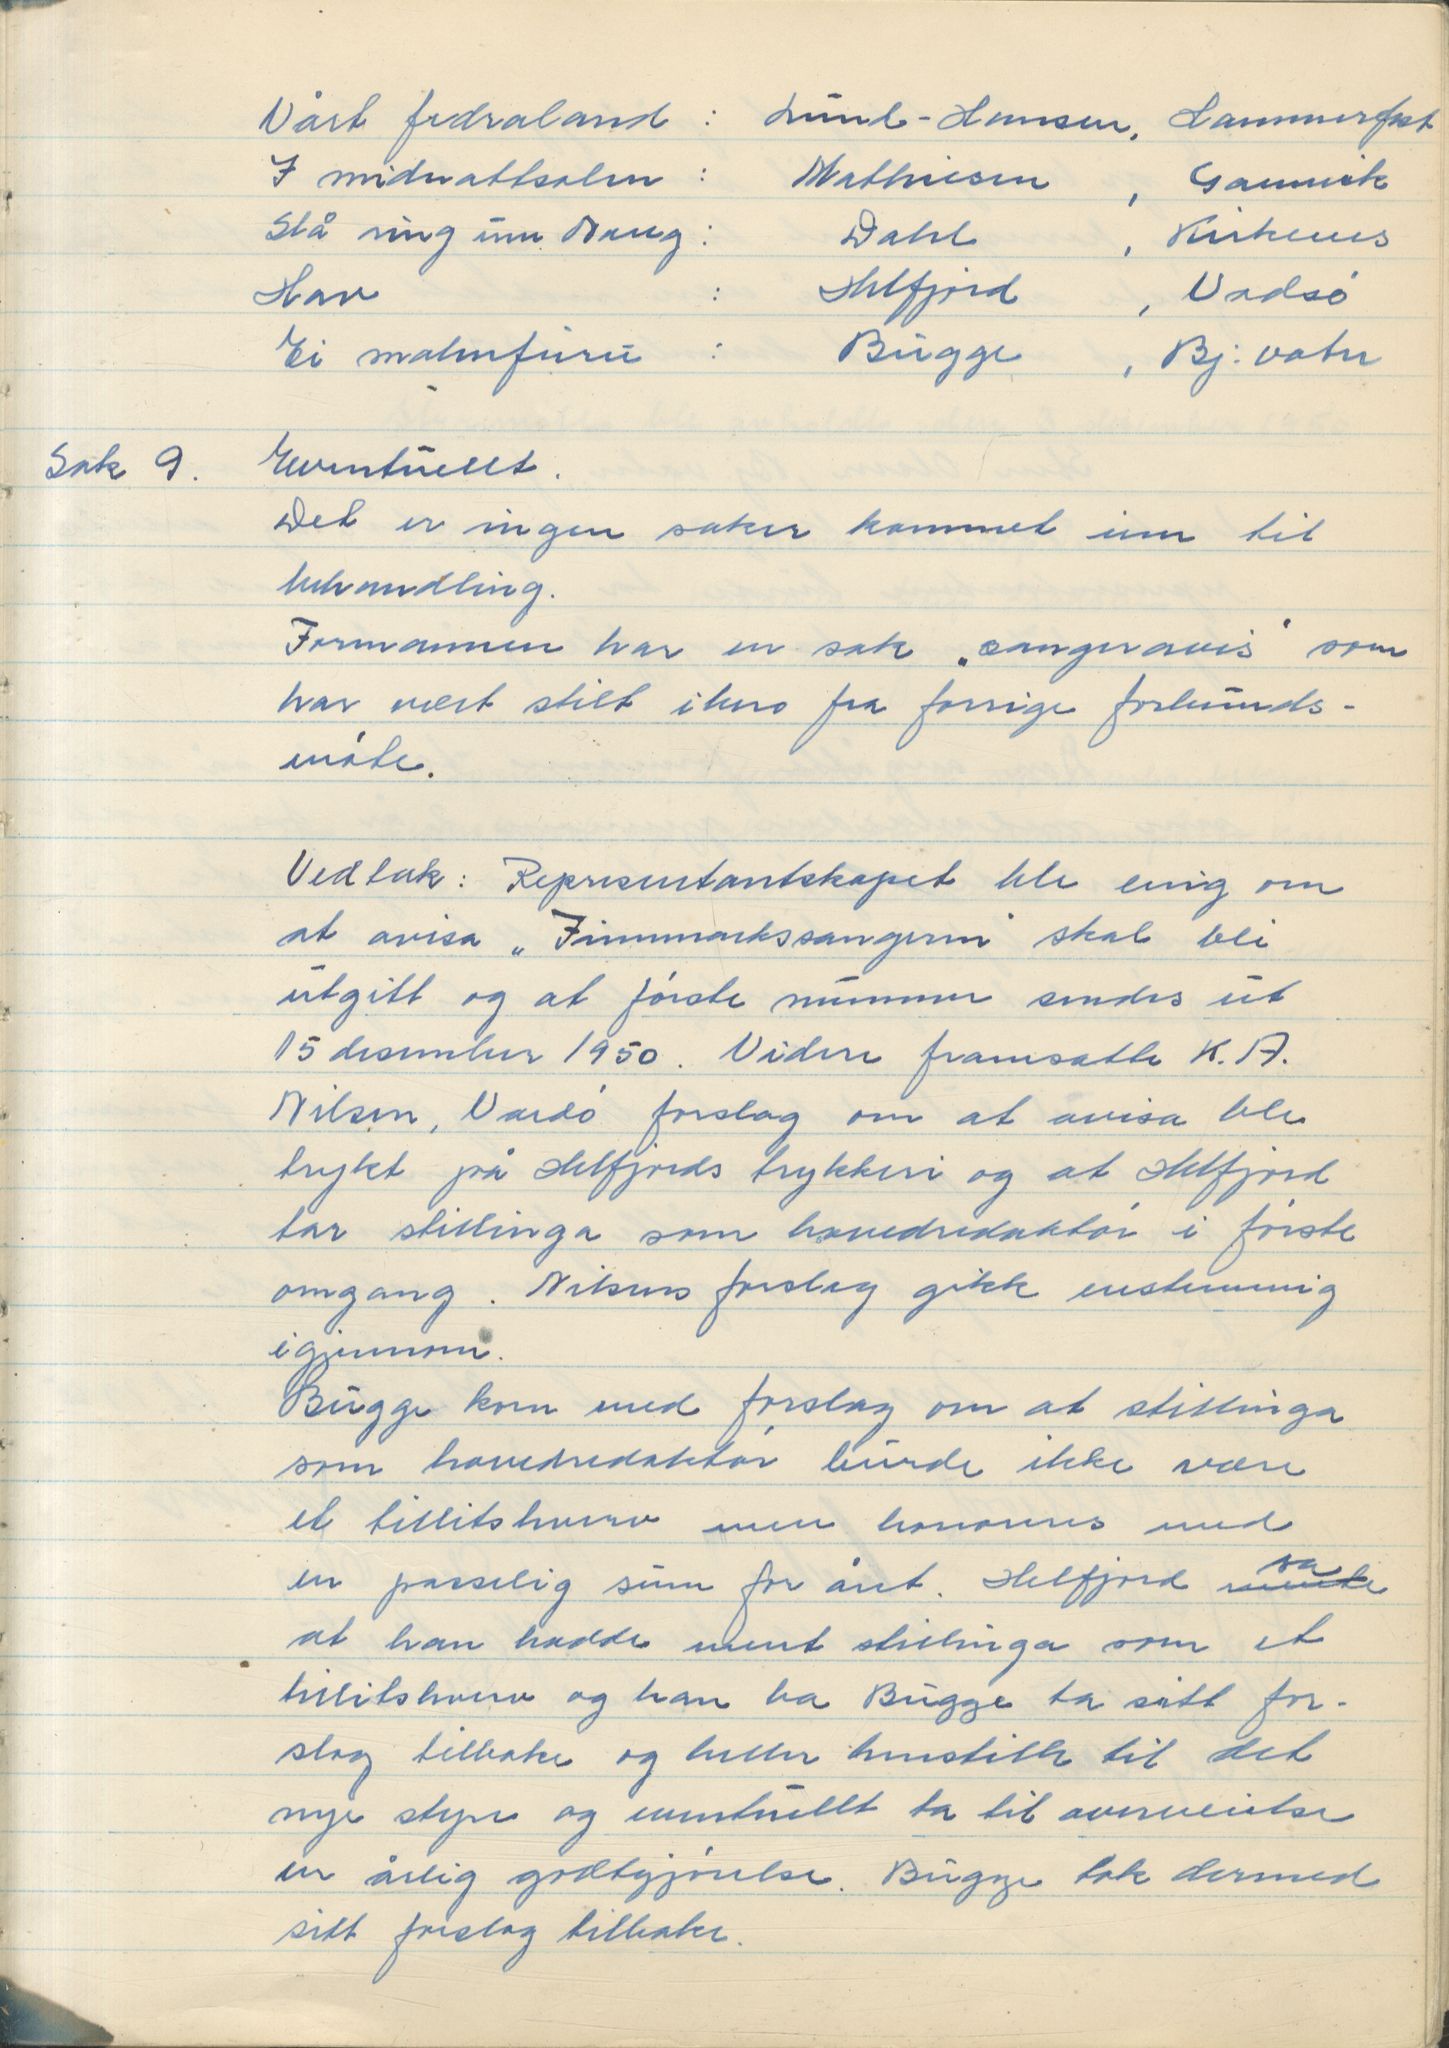 Vårt fedraland : Lund-Hansen, Hammerfest
I midnattsolen : Mathiesen , Gamvik
Slå ring um Noreg : Dahl , Kirkenes
Hav : Helfjord , Vadsø
Ei malmfuru : Bugge , Bj: vatn
Sak 9. Eventuellt.
Det er ingen saker kommet inn til
behandling.
Formannen har en sak „sangeravis" som
har vært stilt i bero fra forrige forbunds-
møte.
Vedtak: Representantskapet ble enig om
at avisa „Finnmarkssangeren" skal bli
utgitt og at første nummer sendes ut
15 desember 1950. Videre framsatte K. A.
Nilsen, Vardø forslag om at avisa ble
trykt på Helfjords trykkeri og at Helfjord
tar stillinga som hovedredaktør i første
omgang. Nilsens forslag gikk enstemmig
igjennom.
Bugge kom med forslag om at stillinga
som hovedredaktør burde ikke være
et tillitshverv men honoreres med
en passelig sum for året. Helfjord mente sa
at han hadde ment stillinga som et
tillitshverv og han ba Bugge ta sitt for-
slag tilbake og heller henstille til det
nye styre og eventuellt ta til overveielse
en årlig godtgjørelse. Bugge tok dermed
sitt forslag tilbake.